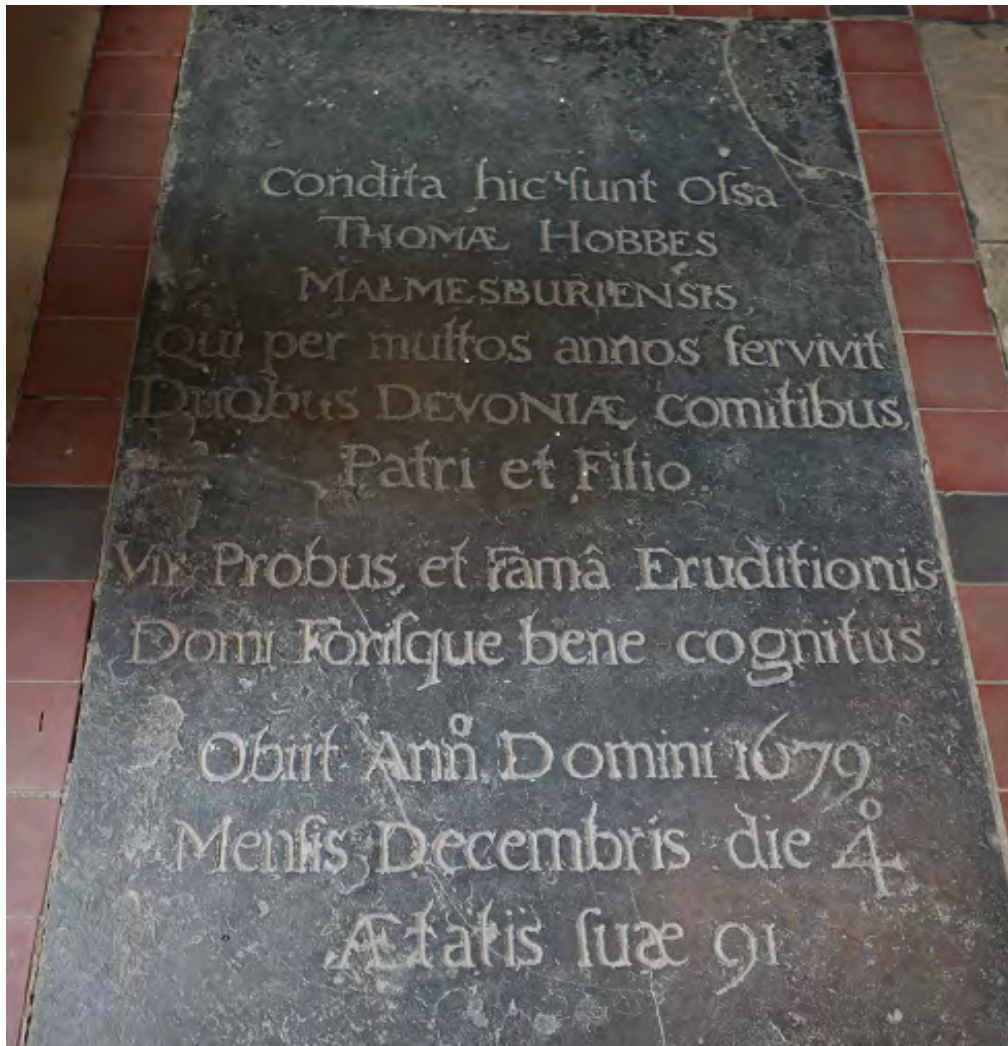 Condita hic ſunt Oſsa
THOMÆ HOBBES
MALMESBURIENSIS,
Qui per multos annos ſervivit
Duobus DEVONIÆ comitibus,
Patri et Filio.
Vir Probus, et Famâ Eruditionis
Domi Foriſque bene cognitus.
Obiit Ann̊. Domini 1679
Menſis Decembris die 4̊.
Ætatis ſuæ 91